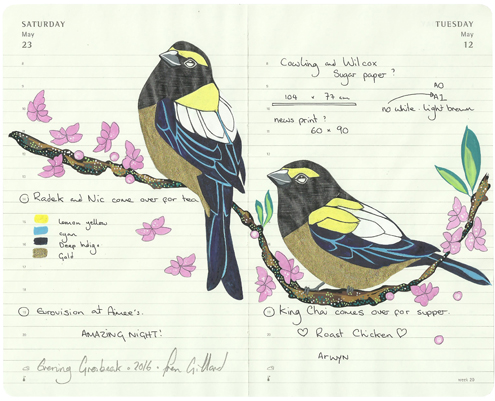 SATURDAY
May
23
Radek and Nic come over for tea
lemon yellow
cyan
Deep Indigo
Gold
Eurovision at Aimee's.
AMAZING NIGHT!
Evening Grosbeak • 2016 •
TUESDAY
May
12
Cowling and Wilcox
Sugar paper?
A0
A1
104 x 77 cm
no white. light brown
news print?
60 x 90
King Chai comes over for supper.
♡ Roast Chicken ♡
Arwyn
week 20